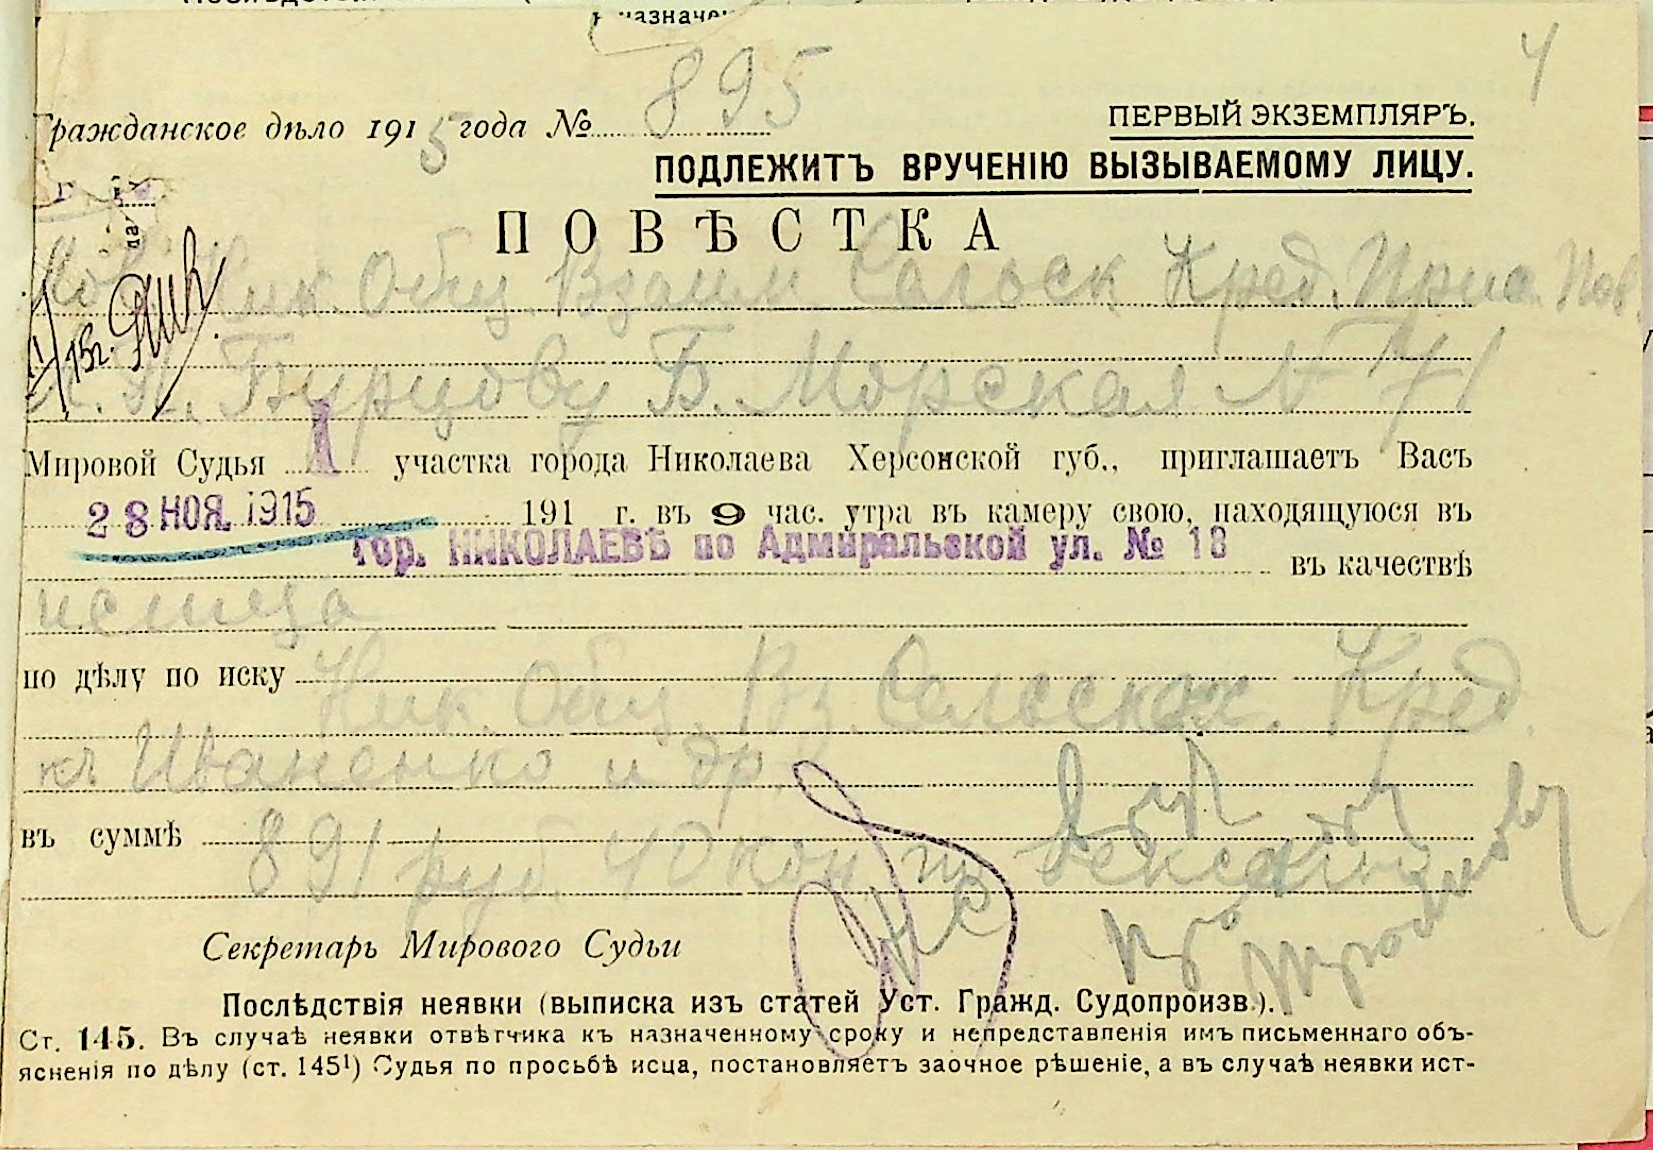 назначен
4
Гражданское дѣло 1915 года № 895
ПЕРВЫЙ ЭКЗЕМПЛЯРЪ.
ПОДЛЕЖИТЪ ВРУЧЕНІЮ ВЫЗЫВАЕМОМУ ЛИЦУ.
ПОВѢСТКА
Ник. Общ. Взаим Сельск Кред. Прис. Пов.
Бурцову Б. Морская № 71
15г.
Мировой Судья 1 участка города Николаева Херсонской губ., приглашаетъ Васъ
28 НОЯ. 1915 191 г. въ 9 час. утра въ камеру свою, находящуюся въ
гор. НИКОЛАЕВѢ по Адмиральской ул. № 18 въ качествѣ
истца
по дѣлу по иску Ник. Общ. Вз. Сельскох. Кред.
къ Иваненко и др.
въ суммѣ 891 руб. 40 коп по
Секретарь Мирового Судьи
Послѣдствія неявки (выписка изъ статей Уст. Гражд. Судопроизв.).
Ст. 145. Въ случаѣ неявки отвѣтчика къ назначенному сроку и непредставленія имъ письменнаго объ-
ясненія по дѣлу (ст. 145¹) Судья по просьбѣ исца, постановляетъ заочное рѣшеніе, а въ случаѣ неявки ист-